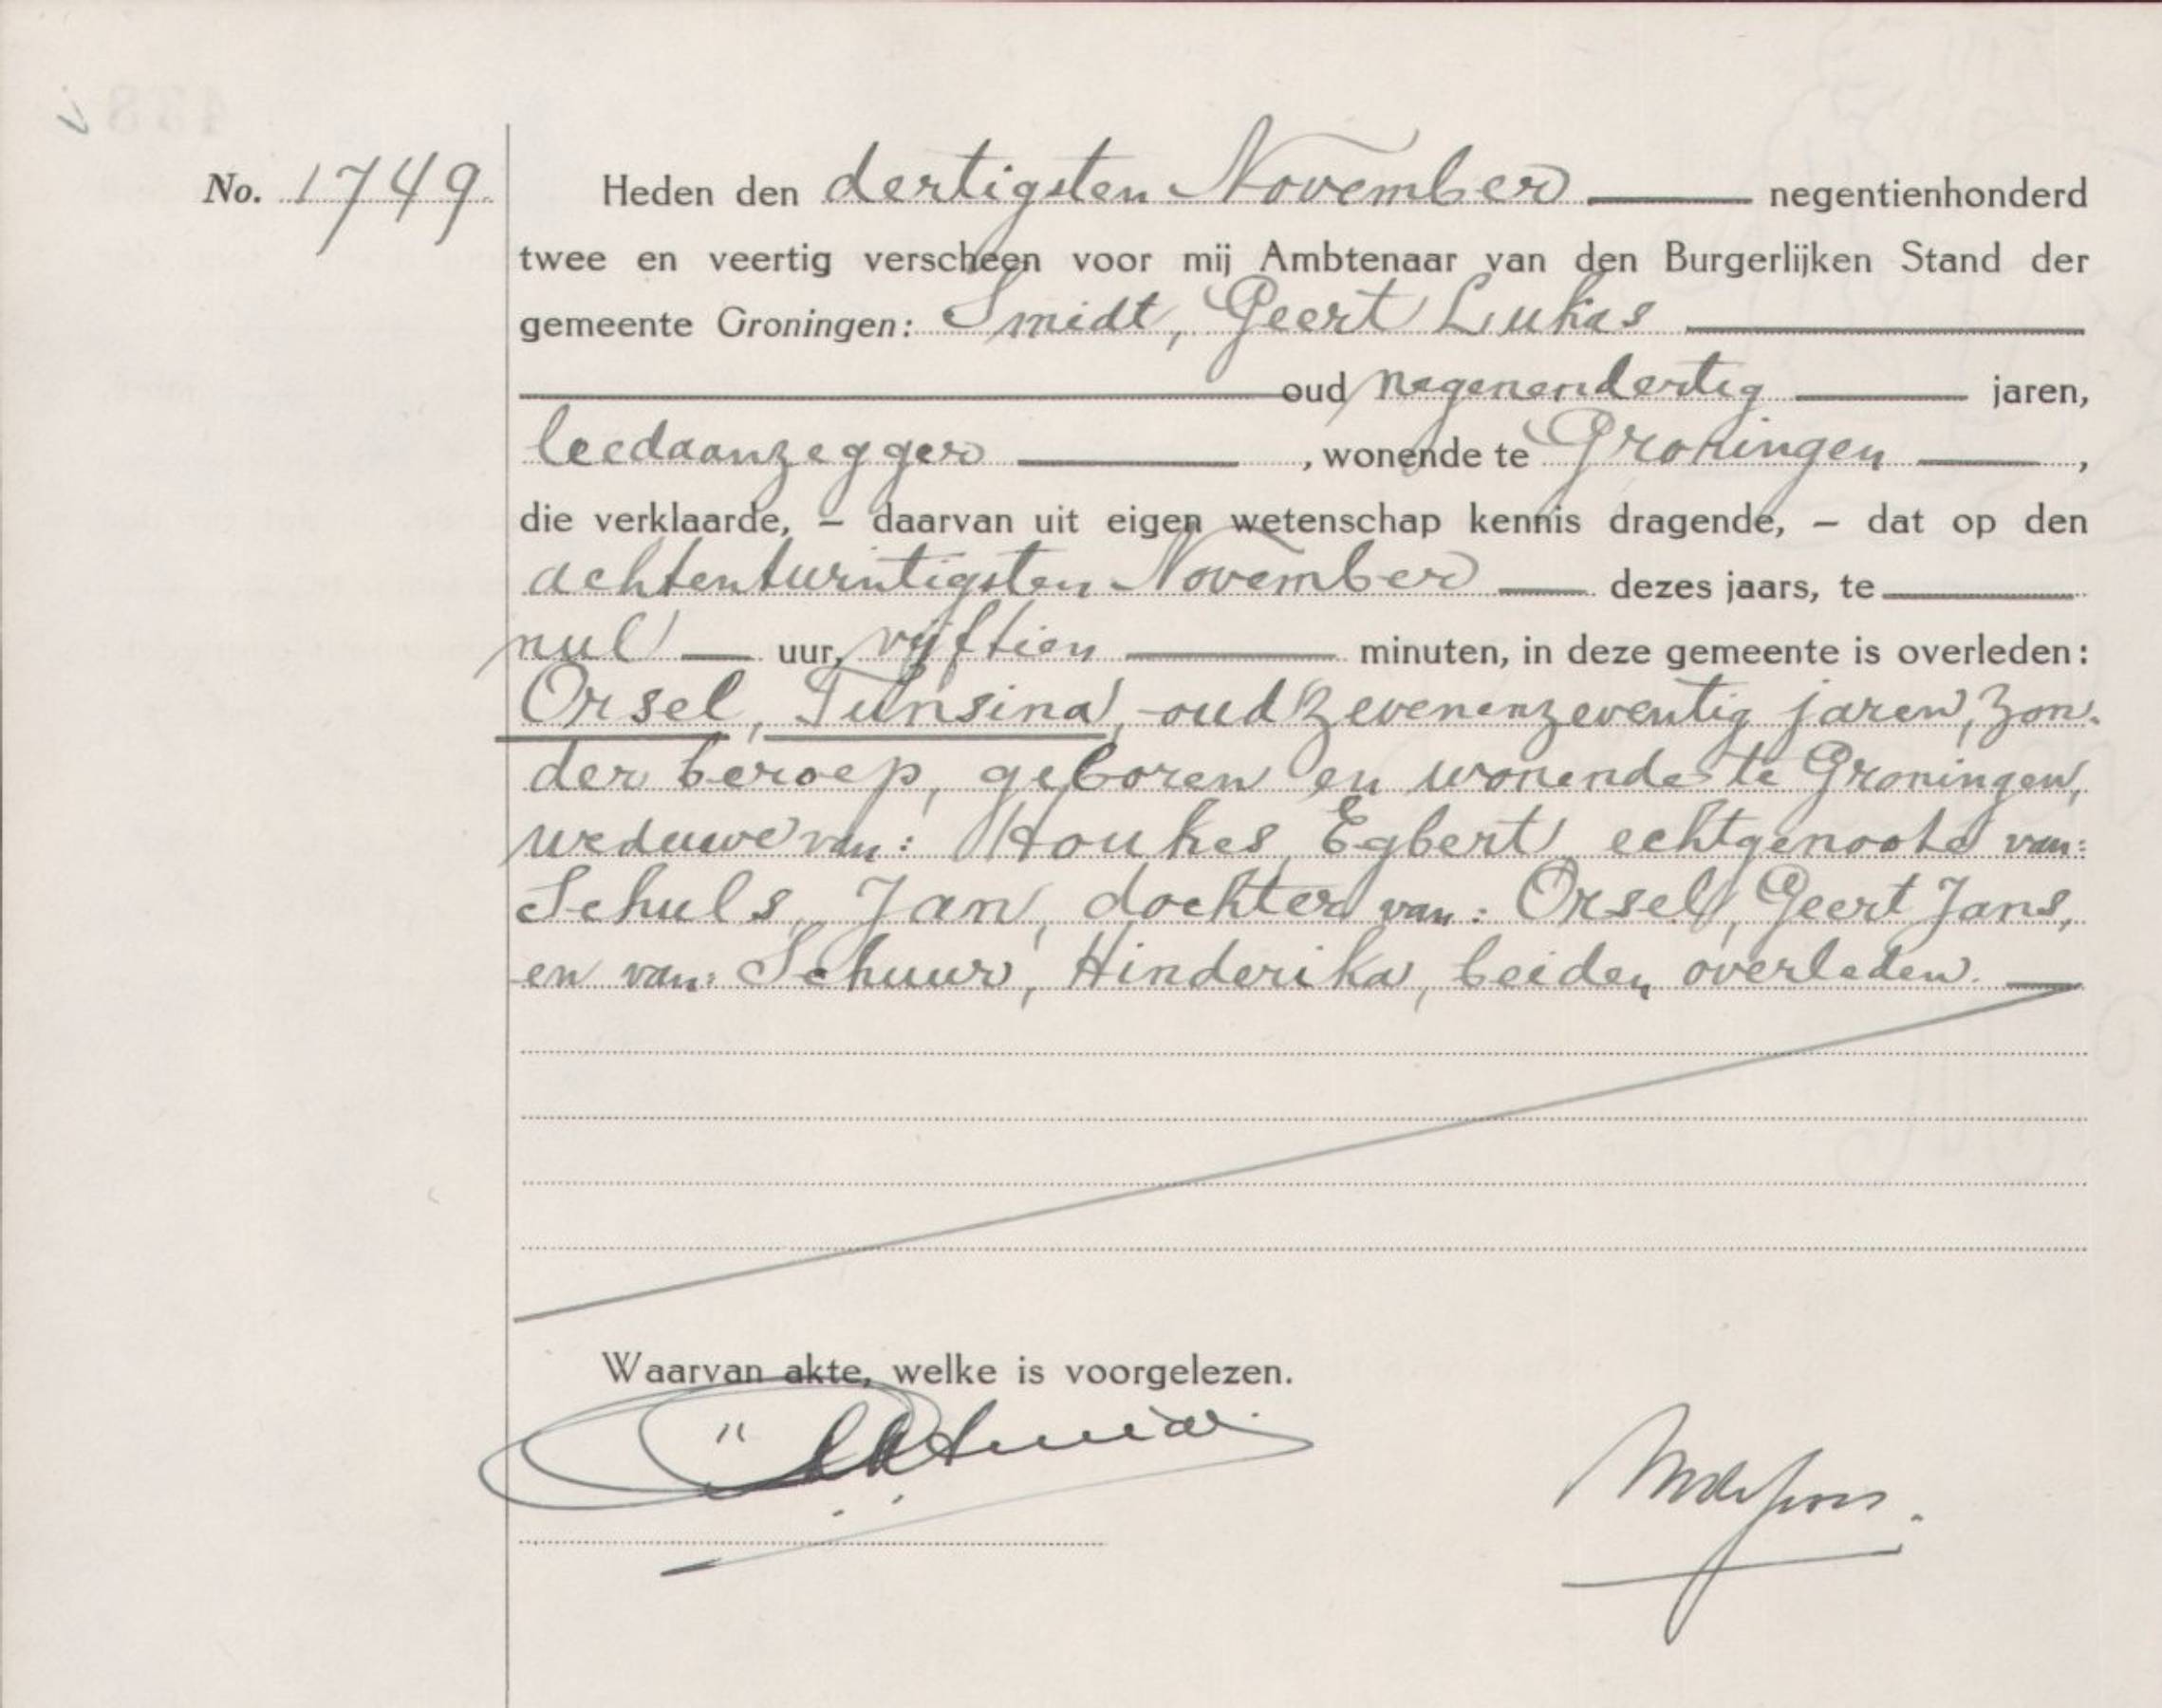 No. 1749.
Heden den dertigsten November negentienhonderd
twee en veertig verscheen voor mij Ambtenaar van den Burgerlijken Stand der
gemeente Groningen: Smidt, Geert Lukas
oud negenendertig jaren,
leedaanzegger, wonende te Groningen,
die verklaarde, – daarvan uit eigen wetenschap kennis dragende, – dat op den
achtentwintigsten November dezes jaars, te
nul uur, vijftien minuten, in deze gemeente is overleden:
Orsel, Tunsina, oud zevenenzeventig jaren, zon-
der beroep, geboren en wonende te Groningen,
weduwe van: Houkes, Egbert, echtgenoote van:
Schuls, Jan, dochter van: Orsel, Geert Jans,
en van: Schuur, Hinderika, beiden overleden.
Waarvan akte, welke is voorgelezen.